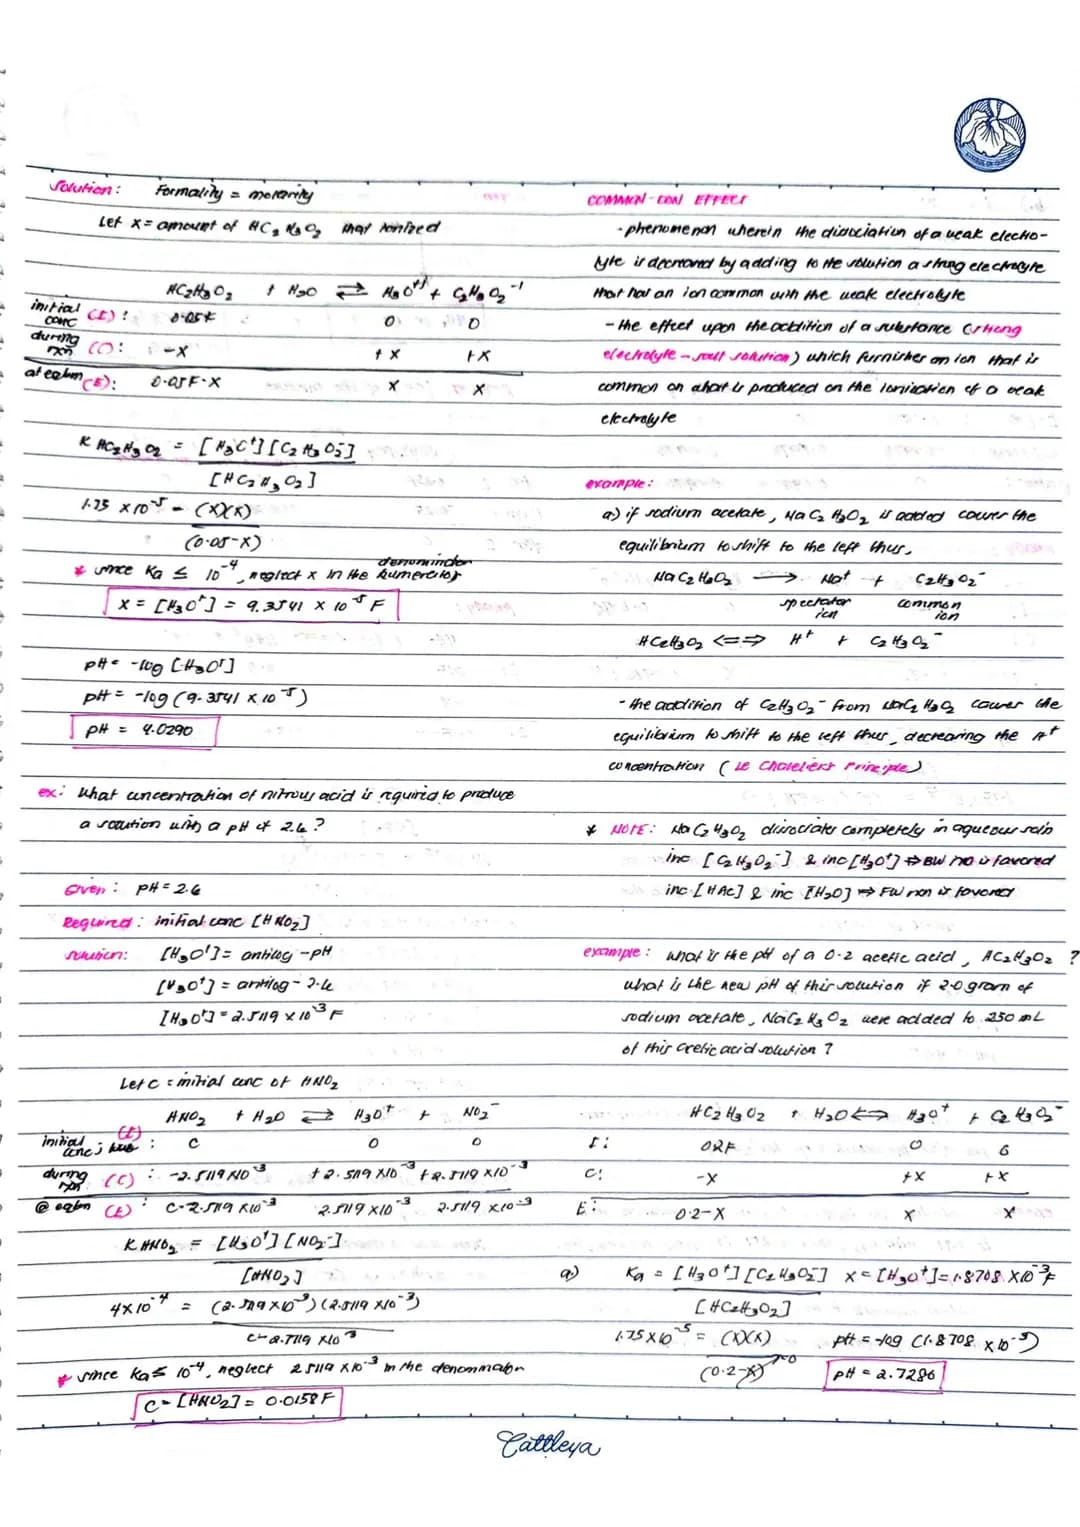 Solution: Formality = molarity
Let x = amount of HC₂H₃O₂ that ionized
HC₂H₃O₂ + H₂O ⇌ H₃O⁺¹ + C₂H₃O₂⁻¹
initial conc (I): 0.05F 0 0
during rxn (C): -x +x +x
at eqbm (E): 0.05F-x x x
K HC₂H₃O₂ = [H₃O⁺][C₂H₃O₂⁻]
[HC₂H₃O₂]
1.75 x 10⁻⁵ = (x)(x)
(0.05-x)
denominator
* since Ka ≤ 10⁻⁴, neglect x in the numerator
x = [H₃O⁺] = 9.3541 x 10⁻⁵ F
pH = -log [H₃O⁺]
pH = -log (9.3541 x 10⁻⁵)
pH = 4.0290
ex: What concentration of nitrous acid is required to produce
a solution with a pH of 2.6?
Given: pH = 2.6
Required: initial conc [HNO₂]
solution: [H₃O⁺] = antilog -pH
[H₃O⁺] = antilog - 2.6
[H₃O⁺] = 2.5119 x 10⁻³ F
Let C = initial conc of HNO₂
HNO₂ + H₂O ⇌ H₃O⁺ + NO₂⁻
initial conc (I): C 0 0
during rxn (C): -2.5119 x10⁻³ +2.5119 x10⁻³ +2.5119 x10⁻³
@ eqbm (E): C-2.5119 x10⁻³ 2.5119 x10⁻³ 2.5119 x10⁻³
K HNO₂ = [H₃O⁺][NO₂⁻]
[HNO₂]
4x10⁻⁴ = (2.5119 x10⁻³)(2.5119 x10⁻³)
C-2.5119 x10⁻³
* since Ka ≤ 10⁻⁴, neglect 2.5119 x10⁻³ in the denominator
C = [HNO₂] = 0.0158 F
COMMON-ION EFFECT
- phenomenon wherein the dissociation of a weak electro-
lyte is decreased by adding to the solution a strong electrolyte
that has an ion common with the weak electrolyte
- the effect upon the addition of a substance (strong
electrolyte - salt solution) which furnishes an ion that is
common on what is produced on the ionization of a weak
electrolyte
example:
a) if sodium acetate, NaC₂H₃O₂ is added causes the
equilibrium to shift to the left thus,
NaC₂H₃O₂ → Na⁺ + C₂H₃O₂⁻
spectator ion common ion
HC₂H₃O₂ <=> H⁺ + C₂H₃O₂⁻
- the addition of C₂H₃O₂⁻ from NaC₂H₃O₂ causes the
equilibrium to shift to the left thus, decreasing the H⁺
concentration (Le Chatelier's Principle)
* NOTE: NaC₂H₃O₂ dissociates completely in aqueous soln
inc [C₂H₃O₂⁻] & inc [H₃O⁺] ⇒ BW rxn is favored
inc [HAc] & inc [H₂O] ⇒ FW rxn is favored
example: What is the pH of a 0.2 acetic acid, HC₂H₃O₂ ?
What is the new pH of this solution if 2.0 gram of
sodium acetate, NaC₂H₃O₂ were added to 250 mL
of this acetic acid solution?
HC₂H₃O₂ + H₂O <=> H₃O⁺ + C₂H₃O₂⁻
I: 0.2F 0 0
C: -x +x +x
E: 0.2-x x x
a) Ka = [H₃O⁺][C₂H₃O₂⁻] x = [H₃O⁺] = 1.8708 x10⁻³ F
[HC₂H₃O₂]
1.75 x10⁻⁵ = (x)(x) pH = -log (1.8708 x 10⁻³)
(0.2-x)→0 pH = 2.7280
Cattleya